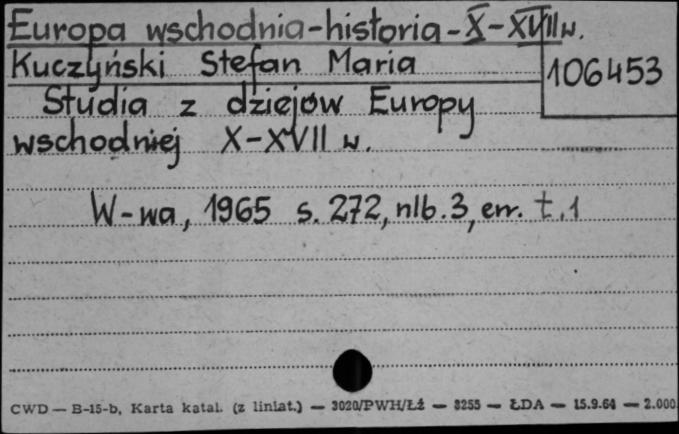 Europa wschodnia-historia-X-XVII w.
Kuczyński Stefan Maria
106453
Studia z dziejów Europy
wschodniej X-XVII w.
W-wa, 1965 s. 272, nlb. 3, err. t. 1
CWD — B-15-b, Karta katal. (z liniat.) — 3020/PWH/Łź — 3255 — ŁDA — 15.9.64 — 2.000